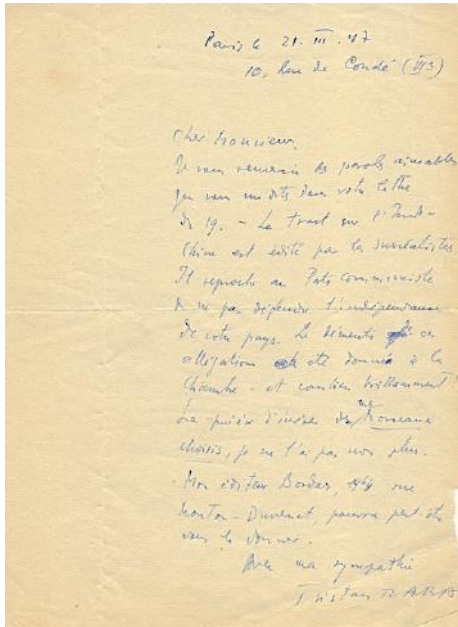 Paris le 21. III. 47
10, Rue de Condé (VIe)
Cher Monsieur,
Je vous remercie des paroles aimables
que vous me dites dans votre lettre
du 19. – Le tract sur l'Indo-
Chine est édité par les surréalistes
Il reproche au Parti communiste
de ne pas défendre l'indépendance
de votre pays. Le démenti de ces
allégations a été donné à la
Chambre – et combien brillamment!
La prière d'insérer de mes Morceaux
choisis, je ne l'ai pas non plus.
Mon éditeur Bordas, rue
Mouton-Duvernet, pourra peut-être
vous la donner.
Avec ma sympathie
Tristan TZARA